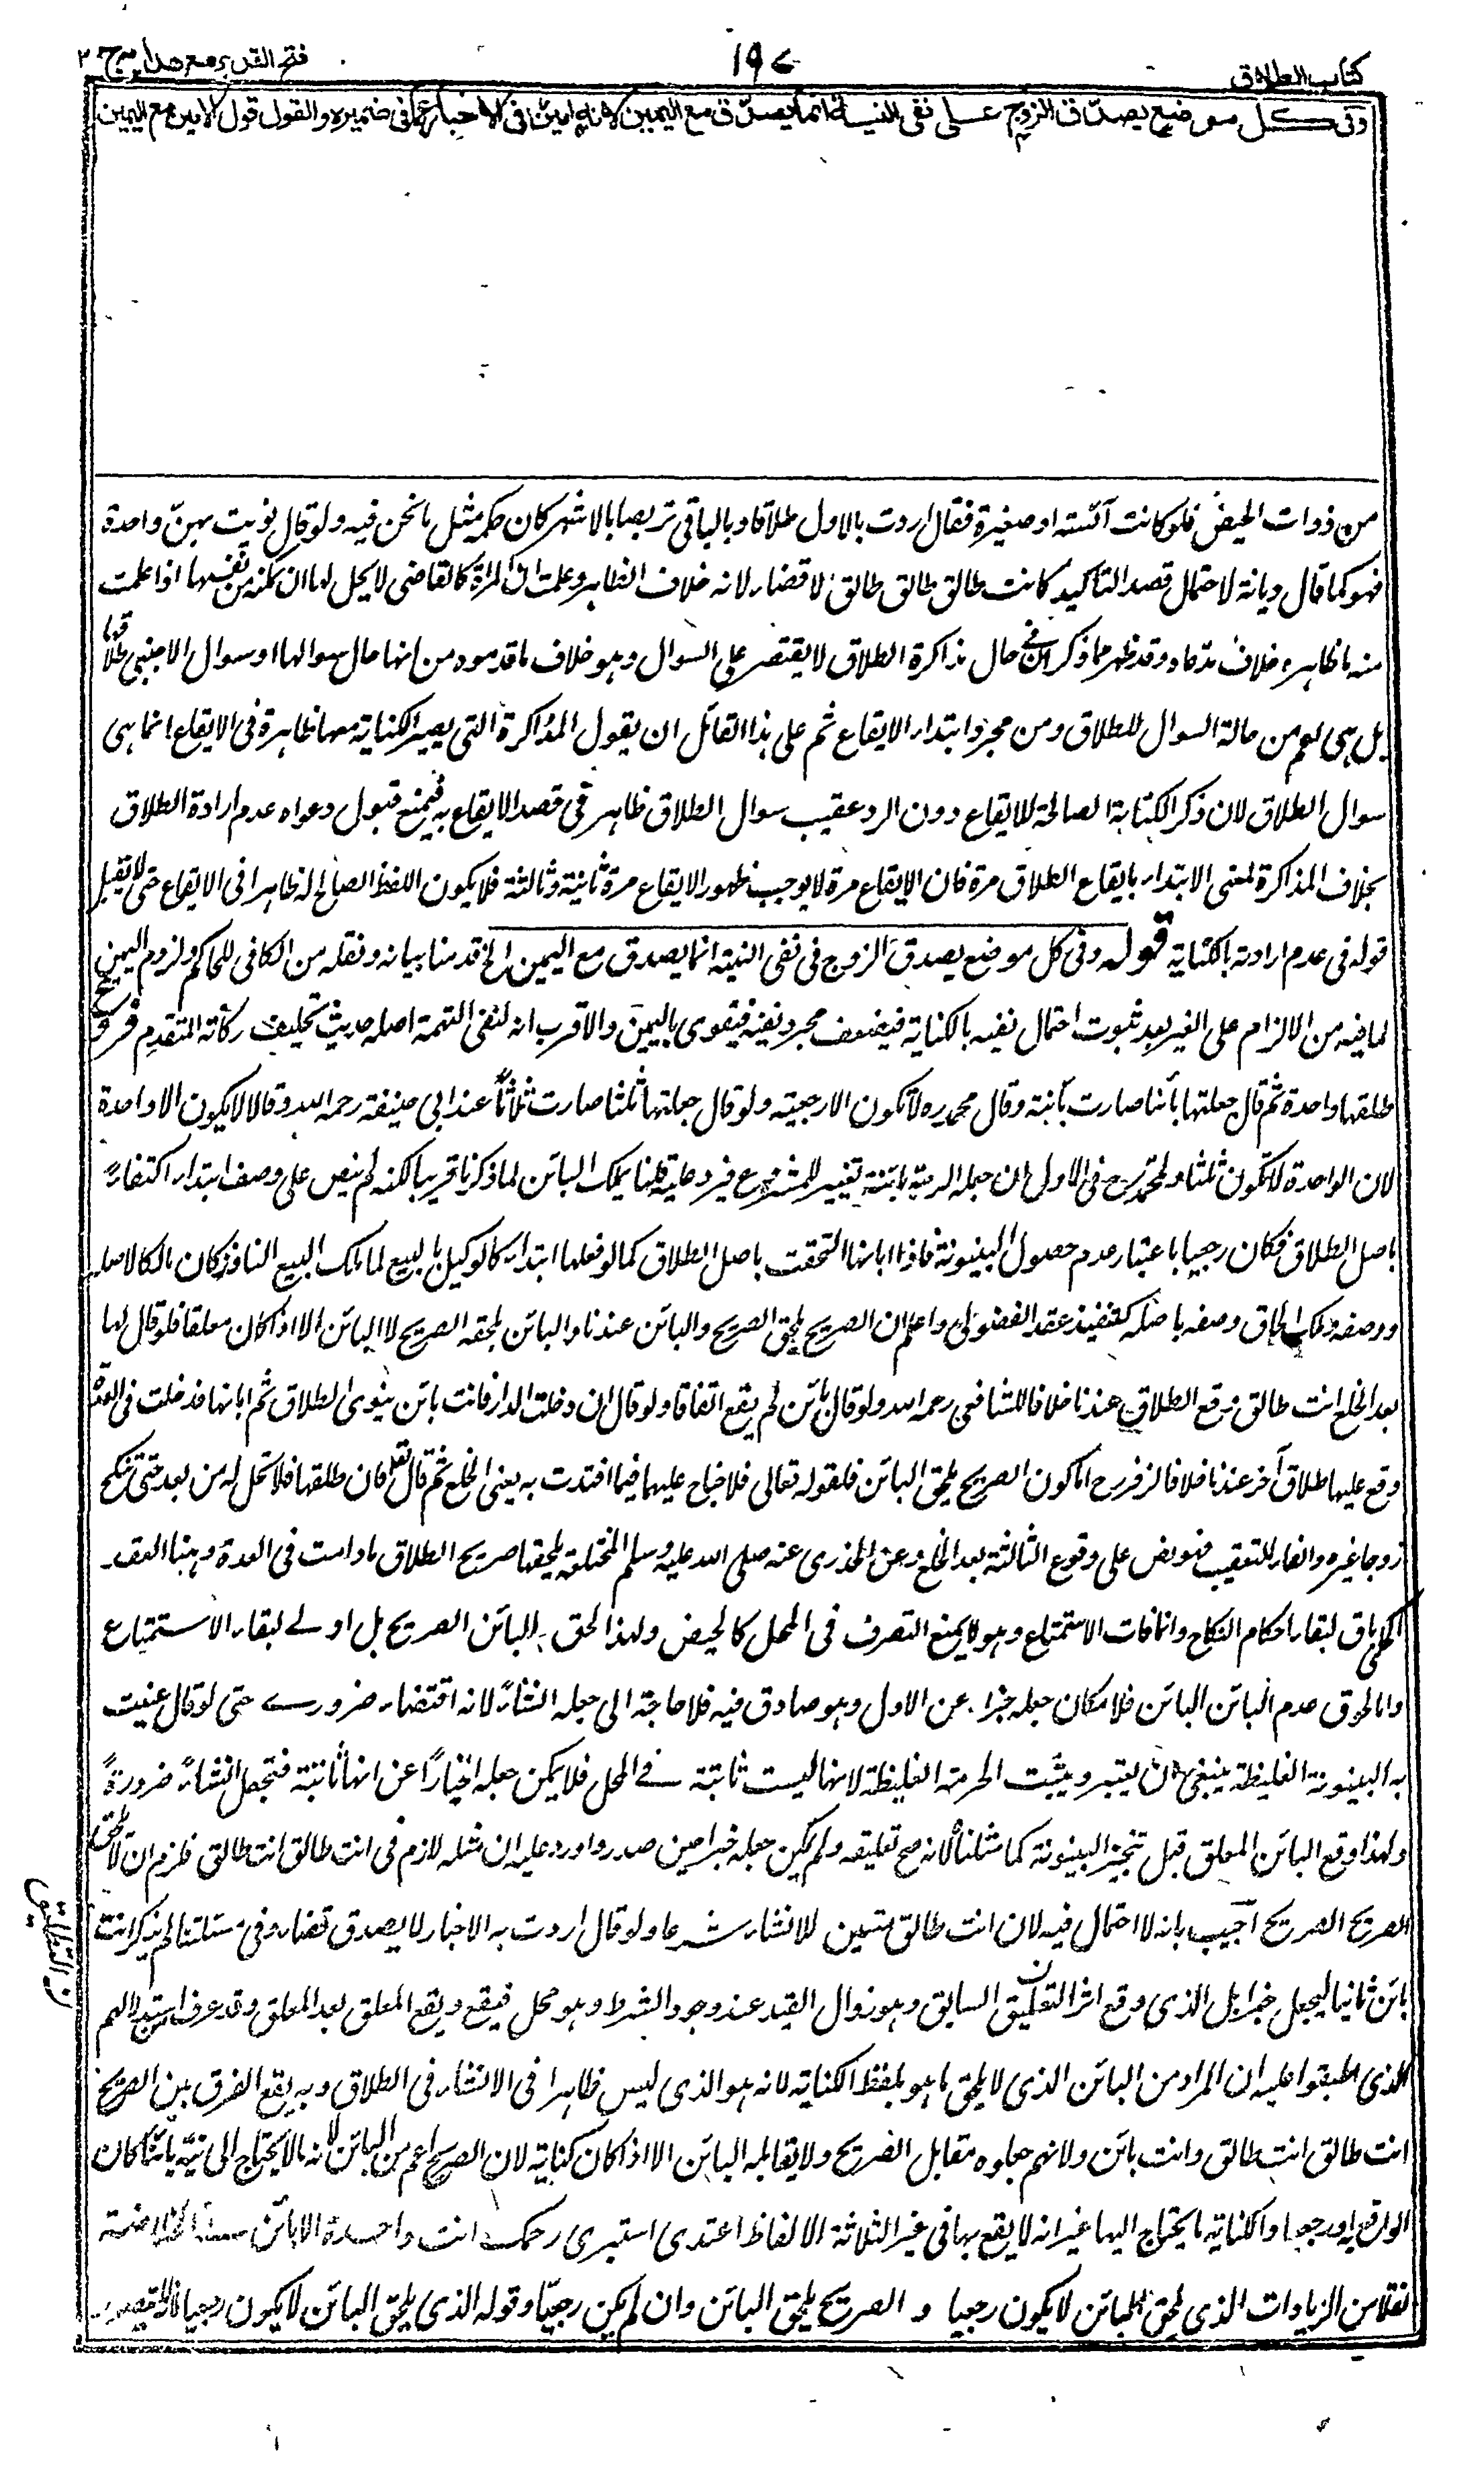 كتاب الطلاق
١٩٧
فتح القدير مع هدايه ج ٢
وفى كل موضع يصدق الزوج على نفى النية انما يصدق مع اليمين لانه امين فى الاخبار عما فى ضميره والقول قول الامين مع اليمين
من ذوات الحيض فلو كانت آئسة او صغيرة فقال اردت بالاول طلاقا وبالباقى تربصا بالاشهر كان حكمه مثل ما نحن فيه ولو قال نويت بهن واحدة
فهو كما قال ديانة لاحتمال قصد التاكيد كانت طالق طالق طالق لا قضاء لانه خلاف الظاهر وعلمت ان المرأة كالقاضى لا يحل لها ان تمكنه من نفسها اذا علمت
منه ما ظاهره خلاف مدعاه وقد ظهر مما ذكر ان فى حال مذاكرة الطلاق لا يقتصر على السوال وهو خلاف ما قدموه من انها حال سوالها او سوال الاجنبى طلاقها
بل هى اعم من حالة السوال للطلاق ومن مجرد ابتداء الايقاع ثم على هذا القائل ان يقول المذاكرة التى يصير الكناية معها ظاهرة فى الايقاع انما هى
سوال الطلاق لان ذكر الكناية الصالحة للايقاع دون الرد عقيب سوال الطلاق ظاهر فى قصد الايقاع به فيمنع قبول دعواه عدم ارادة الطلاق
بخلاف المذاكرة لمعنى الابتداء بايقاع الطلاق مرة فان الايقاع مرة لا يوجب ظهور الايقاع مرة ثانية وثالثة فلا يكون اللفظ الصالح له ظاهرا فى الايقاع حتى لا يقبل
قوله فى عدم ارادته بالكناية قوله وفى كل موضع يصدق الزوج فى نفى النية انما يصدق مع اليمين الخ قدمنا بيانه ونقله من الكافى للحاكم ولزوم اليمين
لما فيه من الالزام على الغير بعد ثبوت احتمال نفيه بالكناية فيضعف مجرد نفيه فيقوى باليمين والاقرب انه لنفى التهمة اصله حديث تحليف ركانة المتقدم فروع
طلقها واحدة ثم قال جعلتها بائنا صارت بائنة وقال محمد ره لا تكون الا رجعية ولو قال جعلتها ثلثا صارت ثلاثا عند ابى حنيفة رحمه الله وقالا لا يكون الا واحدة
لان الواحدة لا تكون ثلثا ولمحمد رح فى الاول ان جعله الرجعية بائنة تغيير للمشروع فيرد عليه قلنا يملك البائن لما ذكرنا قريبا لكنه لم ينص على وصف ابتداء اكتفاءً
باصل الطلاق فكان رجعيا باعتبار عدم حصول البينونة فاذا ابانها التحقت باصل الطلاق كما لو فعلها ابتداء كالوكيل بالبيع لما ملك البيع النافذ كان مالكا لاصله
ووصفه وملك الحاق وصفه باصله كتنفيذ عقد الفضولى واعلم ان الصريح يلحق الصريح والبائن عندنا والبائن يلحقه الصريح لا البائن الا اذا كان معلقا فلو قال لها
بعد الخلع انت طالق وقع الطلاق عندنا خلافا للشافعى رحمه الله ولو قال بائن لم يقع اتفاقا ولو قال ان دخلت الدار فانت بائن ينوى الطلاق ثم ابانها فدخلت فى العدة
وقع عليها طلاق آخر عندنا خلافا لزفر رح اما كون الصريح يلحق البائن فلقوله تعالى فلا جناح عليهما فيما افتدت به يعنى الخلع ثم قال تعالى فان طلقها فلا تحل له من بعد حتى تنكح
زوجا غيره والفاء للتعقيب فهو نص على وقوع الثالثة بعد الخلع وعن الخدرى عنه صلى الله عليه وسلم المختلعة يلحقها صريح الطلاق ما دامت فى العدة وهذا القيد
الحكمى باق لبقاء احكام النكاح وانما فات الاستمتاع وهو لا يمنع التصرف فى المحل كالحيض ولهذا لحق البائن الصريح بل اولى لبقاء الاستمتاع
واما لحوق عدم البائن البائن فلامكان جعله خبرا عن الاول وهو صادق فيه فلا حاجة الى جعله انشاءً لانه اقتضاء ضرورى حتى لو قال عنيت
به البينونة الغليظة ينبغى ان يعتبر ويثبت الحرمة الغليظة لانها ليست ثابتة فى المحل فلا يمكن جعله اخبارًا عن انها ثابتة فتجعل انشاءً ضرورةً
ولهذا وقع البائن المعلق قبل تنجيز البينونة كما مثلنا لانه صح تعليقه ولم يمكن جعله خبرا حين صدر واورد عليه ان مثله لازم فى انت طالق انت طالق فلزم ان لا يلحق
الصريح الصريح اجيب بانه لا احتمال فيه لان انت طالق متعين للانشاء شرعا ولو قال اردت به الاخبار لا يصدق قضاء وفى مسئلتنا لم يذكر انت
بائن ثانيا ليجعل خبرا بل الذى وقع اثر التعليق السابق وهو زوال القيد عند وجود الشرط وهو محل فيقع ويقع المعلق بعد المعلق وقد عرف من استدلالهم
ن التطليق
الذى اطبقوا عليه ان المراد من البائن الذى لا يلحق ما هو بلفظ الكناية لانه هو الذى ليس ظاهرا فى الانشاء فى الطلاق وبه يقع الفرق بين الصريح
انت طالق انت طالق وانت بائن ولانهم جعلوه مقابل الصريح ولا يقابله البائن الا اذا كان كناية لان الصريح اعم من البائن لانه ما لا يحتاج الى نية بائنا كان
الواقع به او رجعيا والكناية ما يحتاج اليها غير انه لا يقع بها فى غير الثلاثة الالفاظ اعتدى استبرى رحمك انت واحدة الا بائن الخلاصة
نقلا من الزيادات الذى يلحق البائن لا يكون رجعيا و الصريح يلحق البائن وان لم يكن رجعيًا وقوله الذى يلحق البائن لا يكون رجعيا